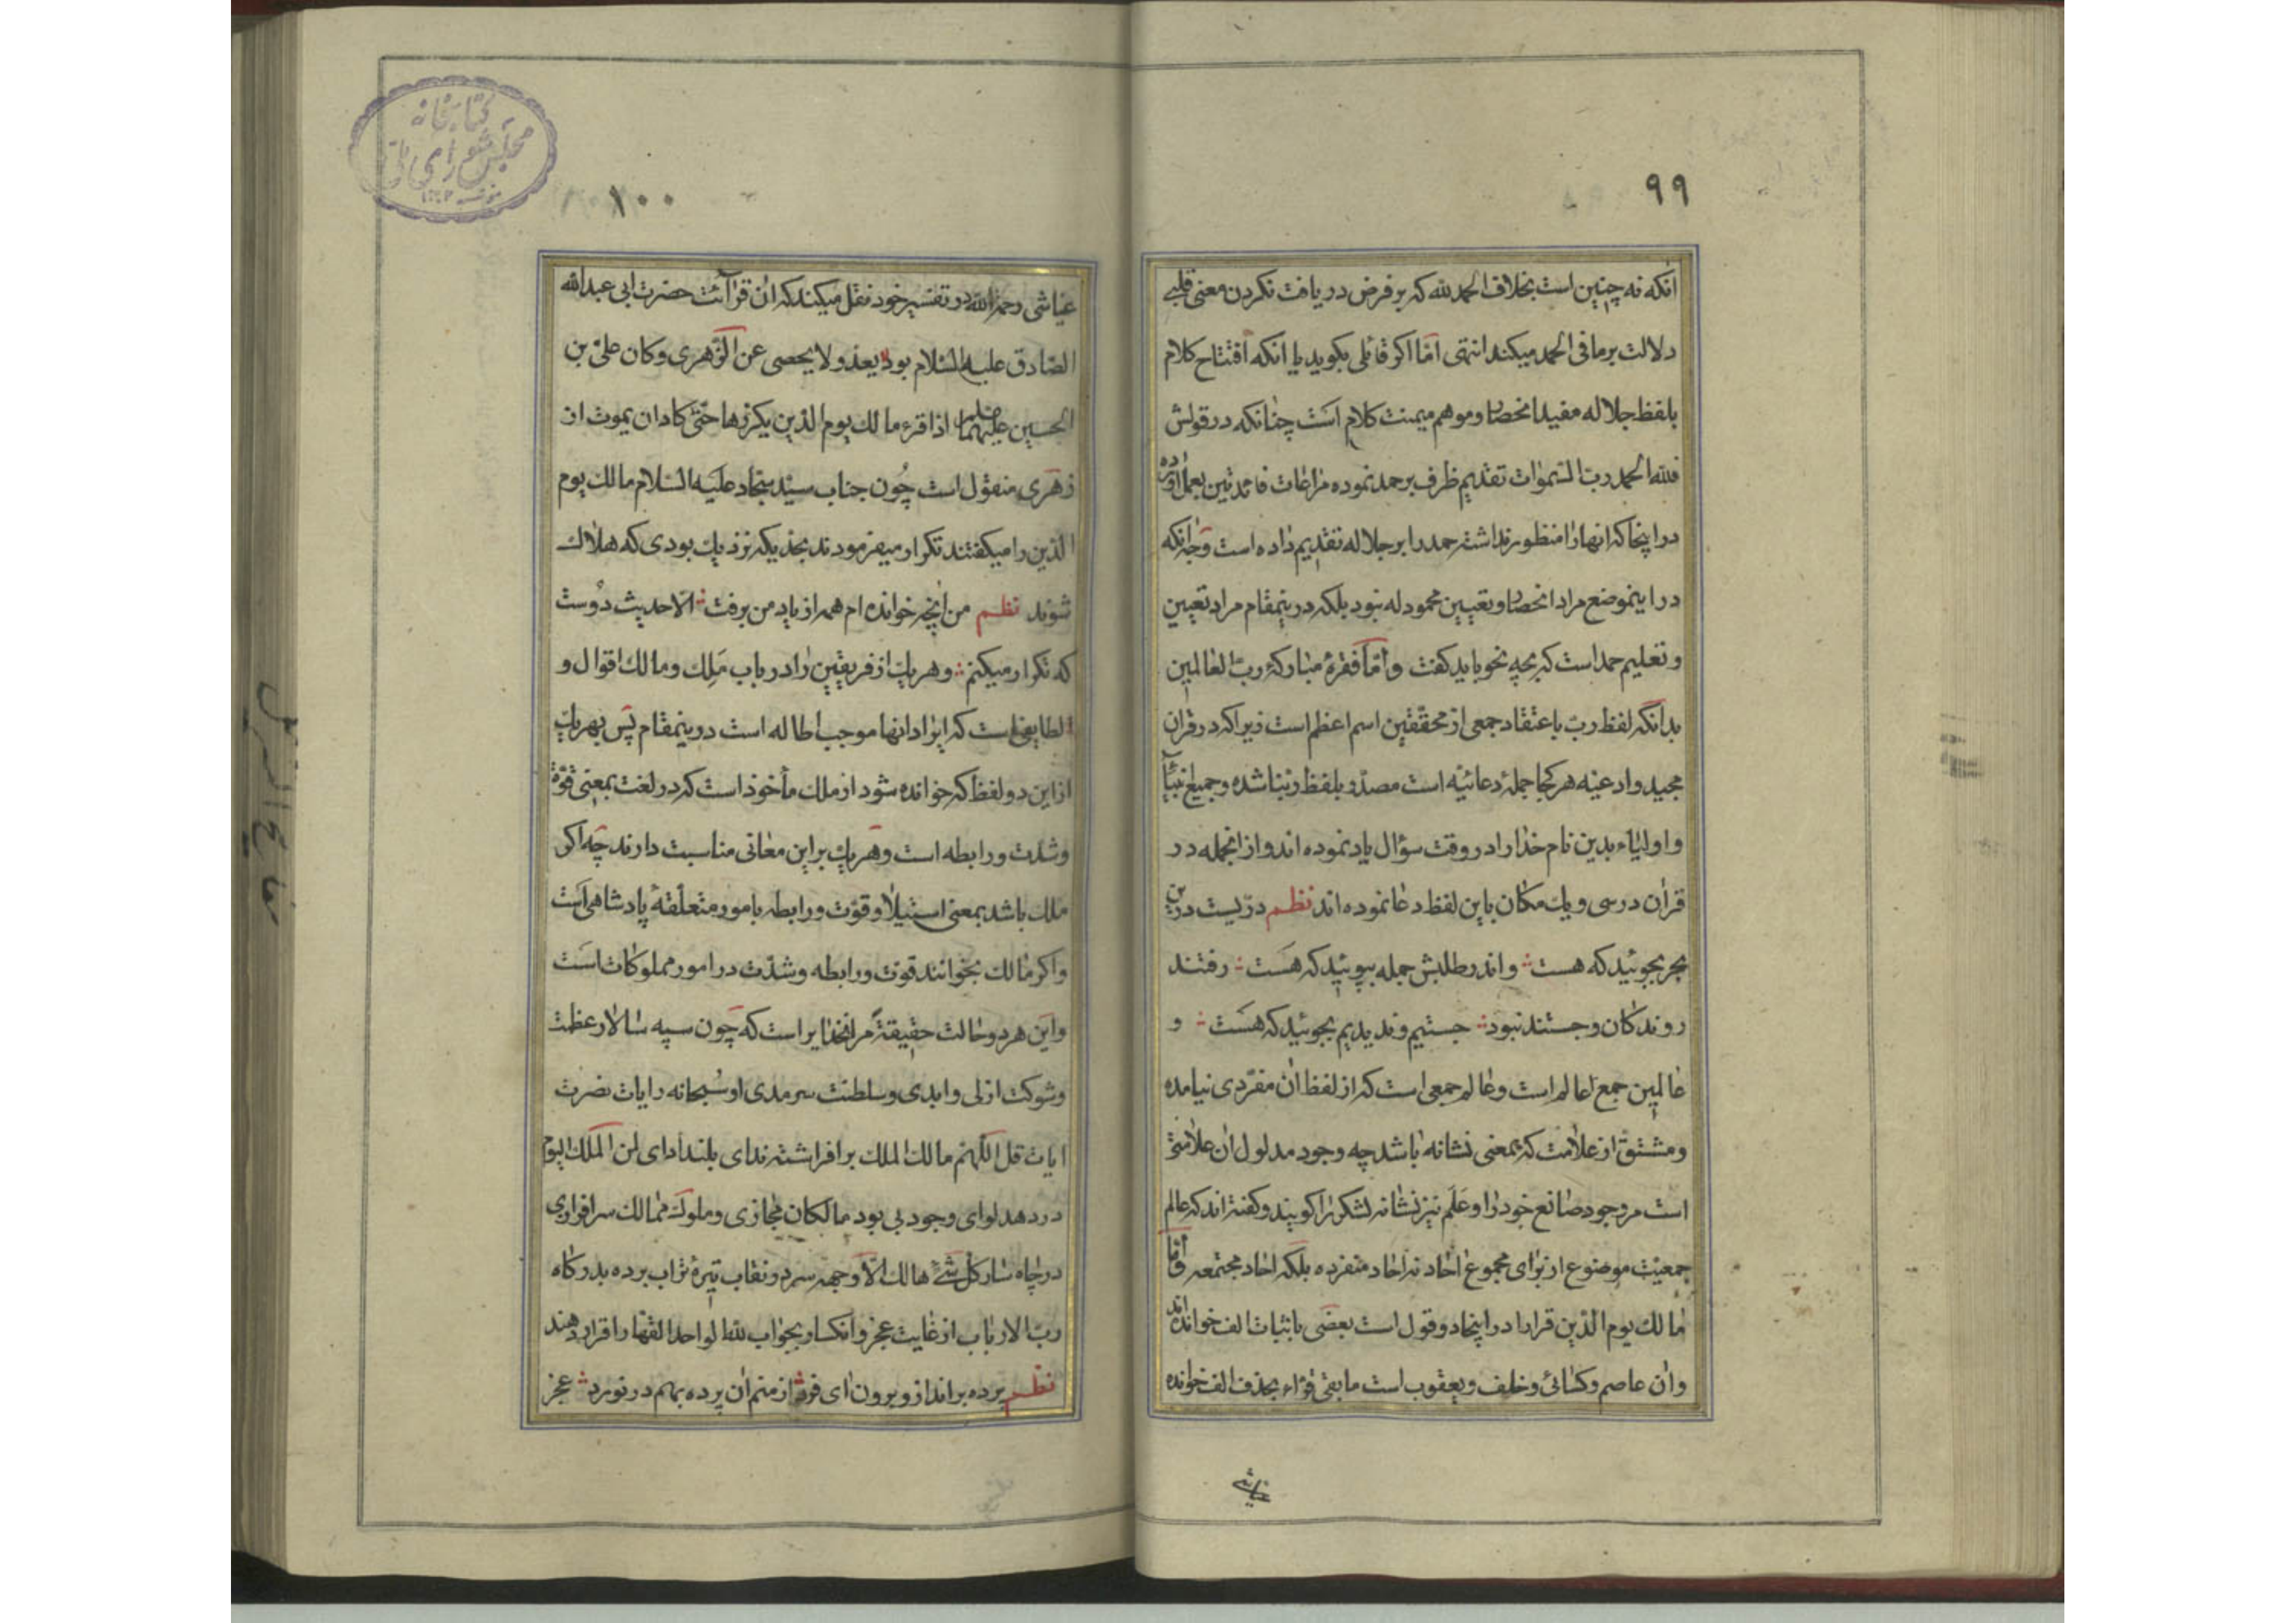 ۹۹
انکه نه چنین است بخلاف الحمد لله که بر فرض دریافت نکردن معنی قلبی
دلالت بر ما فی الحمد میکند انتهی امّا اکر قائلی بکوید یا انکه افتتاح کلام
بلفظ جلاله مفید انحصار و موهم میمنت کلام است چنانکه در قولش
فلله الحمد ربّ السّموات تقدیم ظرف بر حمد نموده مراعات فائدتین بعمل اورده
در اینجا که انها را منظور نداشته حمد را بر جلاله تقدیم داده است وجه انکه
در اینموضع مراد انحصار و تعیین محمود له نبود بلکه درینمقام مراد تعیین
و تعلیم حمد است که بچه نحو باید کفت و امّا فقرهٔ مبارکهٔ ربّ العالمین
بدانکه لفظ ربّ باعتقاد جمعی از محقّقین اسم اعظم است زیرا که در قران
مجید و ادعیه هر کجا جملهٔ دعائیّه است مصدّر بلفظ ربّنا شده و جمیع انبیآ
و اولیاء بدین نام خدا را در وقت سؤال یاد نموده اند و از انجمله در
قران در سی و یك مکان باین لفظ دعا نموده اند نظم درّیست درین
بحر بجوئید که هست و اندر طلبش جمله بپوئید که هست رفتند
روندکان و جستند نبود جستیم و ندیدیم بجوئید که هست و
عالمین جمع عالم است و عالم جمعی است که از لفظ ان مفردی نیامده
و مشتق از علامت که بمعنی نشانه باشد چه وجود مدلول ان علامتی
است مر وجود صانع خود را و عَلَم نیز نشانه لشکر را کویند و کفته اند که عالم
جمعیّت موضوع از برای مجموع احاد نه احاد منفرده بلکه احاد مجتمعه و امّا
مالك یوم الدّین قرّا را در اینجا دو قول است بعضی باثبات الف خوانده اند
و ان عاصم و کسائی و خلف و یعقوب است ما بقی قرّاء بحذف الف خوانده
عیاشی
۱۰۰
عیاشی رحمة الله در تفسیر خود نقل میکند که ان قرآئت حضرت ابی عبد الله
الصّادق علیه السّلام بود یعد و لا یحصی عن الزّهری و کان علیّ بن
الحسین علیهما اذا قرء مالك یوم الدّین یکرّرها حتّی کاد ان یموت از
زهری منقول است چون جناب سیّد سجّاد علیه السّلام مالك یوم
الدّین را میکفتند تکرار میفرمودند بحدّیکه نزدیك بودی که هلاك
شوند نظم من انچه خوانده ام همه از یاد من برفت الّا حدیث دوست
که تکرار میکنم و هر یك از فریقین را در باب مَلِك و مالك اقوال و
لطایفی است که ایراد انها موجب اطاله است درینمقام پس بهر یك
از این دو لفظ که خوانده شود از ملك مأخوذ است که در لغت بمعنی قوّة
و شدّت و رابطه است و هر یك بر این معانی مناسبت دارند چه اکر
ملك باشد بمعنی استیلا و قوّت و رابطه بامور متعلّقهٔ پادشاهی است
و اکر مالك بخوانند قوّت و رابطه و شدّت در امور مملوکات است
و این هر دو حالت حقیقةً مر انخدایراست که چون سپه سالار عظمت
و شوکت ازلی و ابدی و سلطنت سرمدی او سُبحانه رایات نصرت
ایات قل اللّهم مالك الملك بر افراشته ندای بلند ادای لمن الملك الیوم
در دهد لوای وجود بی بود مالکان مجازی و ملوك ممالك سرافرازی
در چاه سار کلّ شئ هالك الّا وجهه سر در نقاب تیرهٔ تراب برده بدرکاه
ربّ الارباب از غایت عجز و انکسار بجواب للّه الواحد القهّار اقرار دهند
نظم پرده بر انداز و برون ای فرد از منم ان پرده بهم در نورد عجز
کتابخانه
مجلس شورای ملی